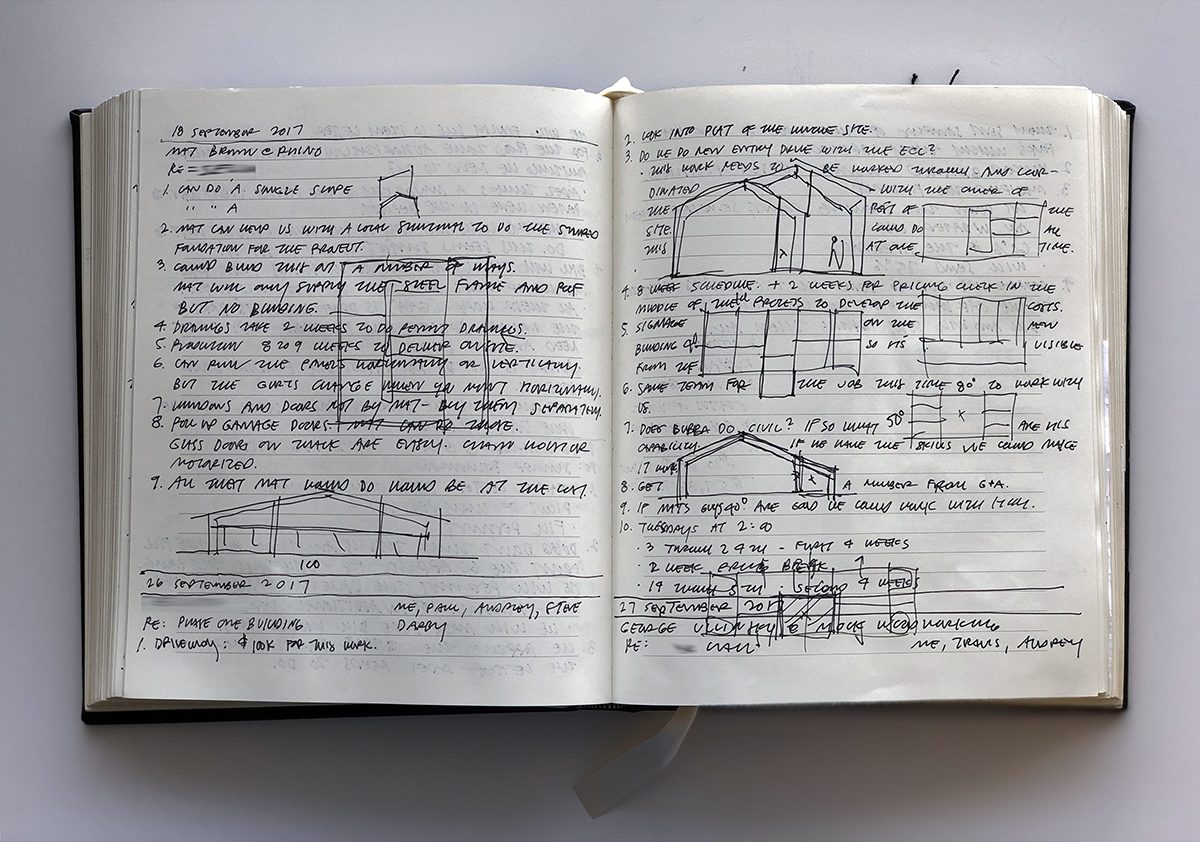 18 SEPTEMBER 2017
MAT BROWN @ RHINO
RE:
1. CAN DO A SINGLE SLOPE
" " A
2. MAT CAN HELP US WITH A LOCAL STRUCTURAL TO DO THE STAMPED
FOUNDATION FOR THE PROJECT.
3. COULD BUILD THIS ON A NUMBER OF WAYS.
MAT WILL ONLY SUPPLY THE STEEL FRAME AND ROOF
BUT NO BUILDING.
4. DRAWINGS TAKE 2 WEEKS TO DO PERMIT DRAWINGS.
5. PRODUCTION 8 TO 9 WEEKS TO DELIVER ON SITE.
6. CAN RUN THE PANELS HORIZONTALLY OR VERTICALLY.
BUT THE GIRTS CHANGE WHEN YOU WANT HORIZONTALLY.
7. WINDOWS AND DOORS NOT BY MAT - BUY THEM SEPARATELY.
8. ROLL UP GARAGE DOORS MAT CAN DO THOSE.
GLASS DOORS ON TRACK ARE EASY. CHAIN HOIST OR
MOTORIZED.
9. ALL THAT MAT WOULD DO WOULD BE AT THE
100
26 SEPTEMBER 2017
ME, PAUL, AUDREY, STEVE
RE: PHASE ONE BUILDING DARBY
1. DRIVEWAY: $100K FOR THIS WORK.
2. LOOK INTO PLAT OF THE WHOLE SITE.
3. DO WE DO NEW ENTRY DRIVE WITH THE ECC?
· THIS WORK NEEDS TO BE WORKED THROUGH AND COOR-
DINATED - WITH THE OWNER OF
THE REST OF THE
SITE. COULD DO ALL
THIS AT ONE TIME.
4. 8 WEEK SCHEDULE. + 2 WEEKS FOR PRICING CHECK IN THE
MIDDLE OF THE PROJECTS TO DEVELOP THE COSTS.
5. SIGNAGE ON THE NEW
BUILDING SO ITS VISIBLE
FROM THE
6. SAME TEAM FOR THE JOB THIS TIME 80° TO WORK WITH
US.
7. DOES BUBBA DO CIVIL? IF SO WHAT 50° ARE HIS
CAPABILITY IF HE HAVE THE SKILLS WE COULD MAKE
IT WORK
8. GET A NUMBER FROM G+A.
9. IF MATS GUYS 40° ARE GOOD WE COULD WORK WITH HIM.
10. TUESDAYS AT 2:00
· 3 THROUGH 24TH - FIRST 4 WEEKS
· 2 WEEK PRICING BREAK
· 14 THROUGH 5TH · SECOND 4 WEEKS
27 SEPTEMBER 2017
GEORGE WOODWORKING
RE: WALL ME, TRAVIS, AUDREY